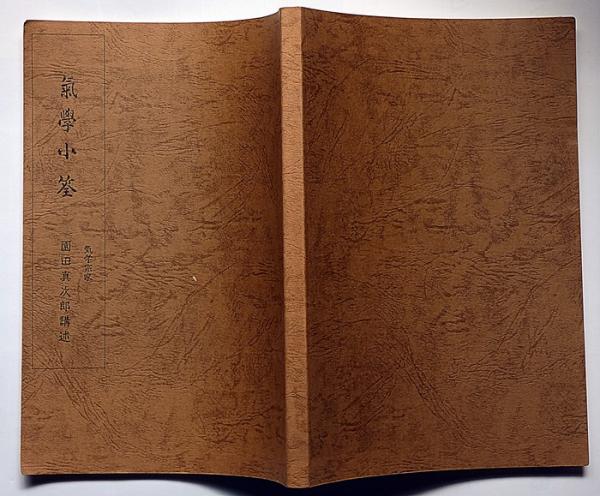 氣學小筌
気学宗家
園田真次郎講述